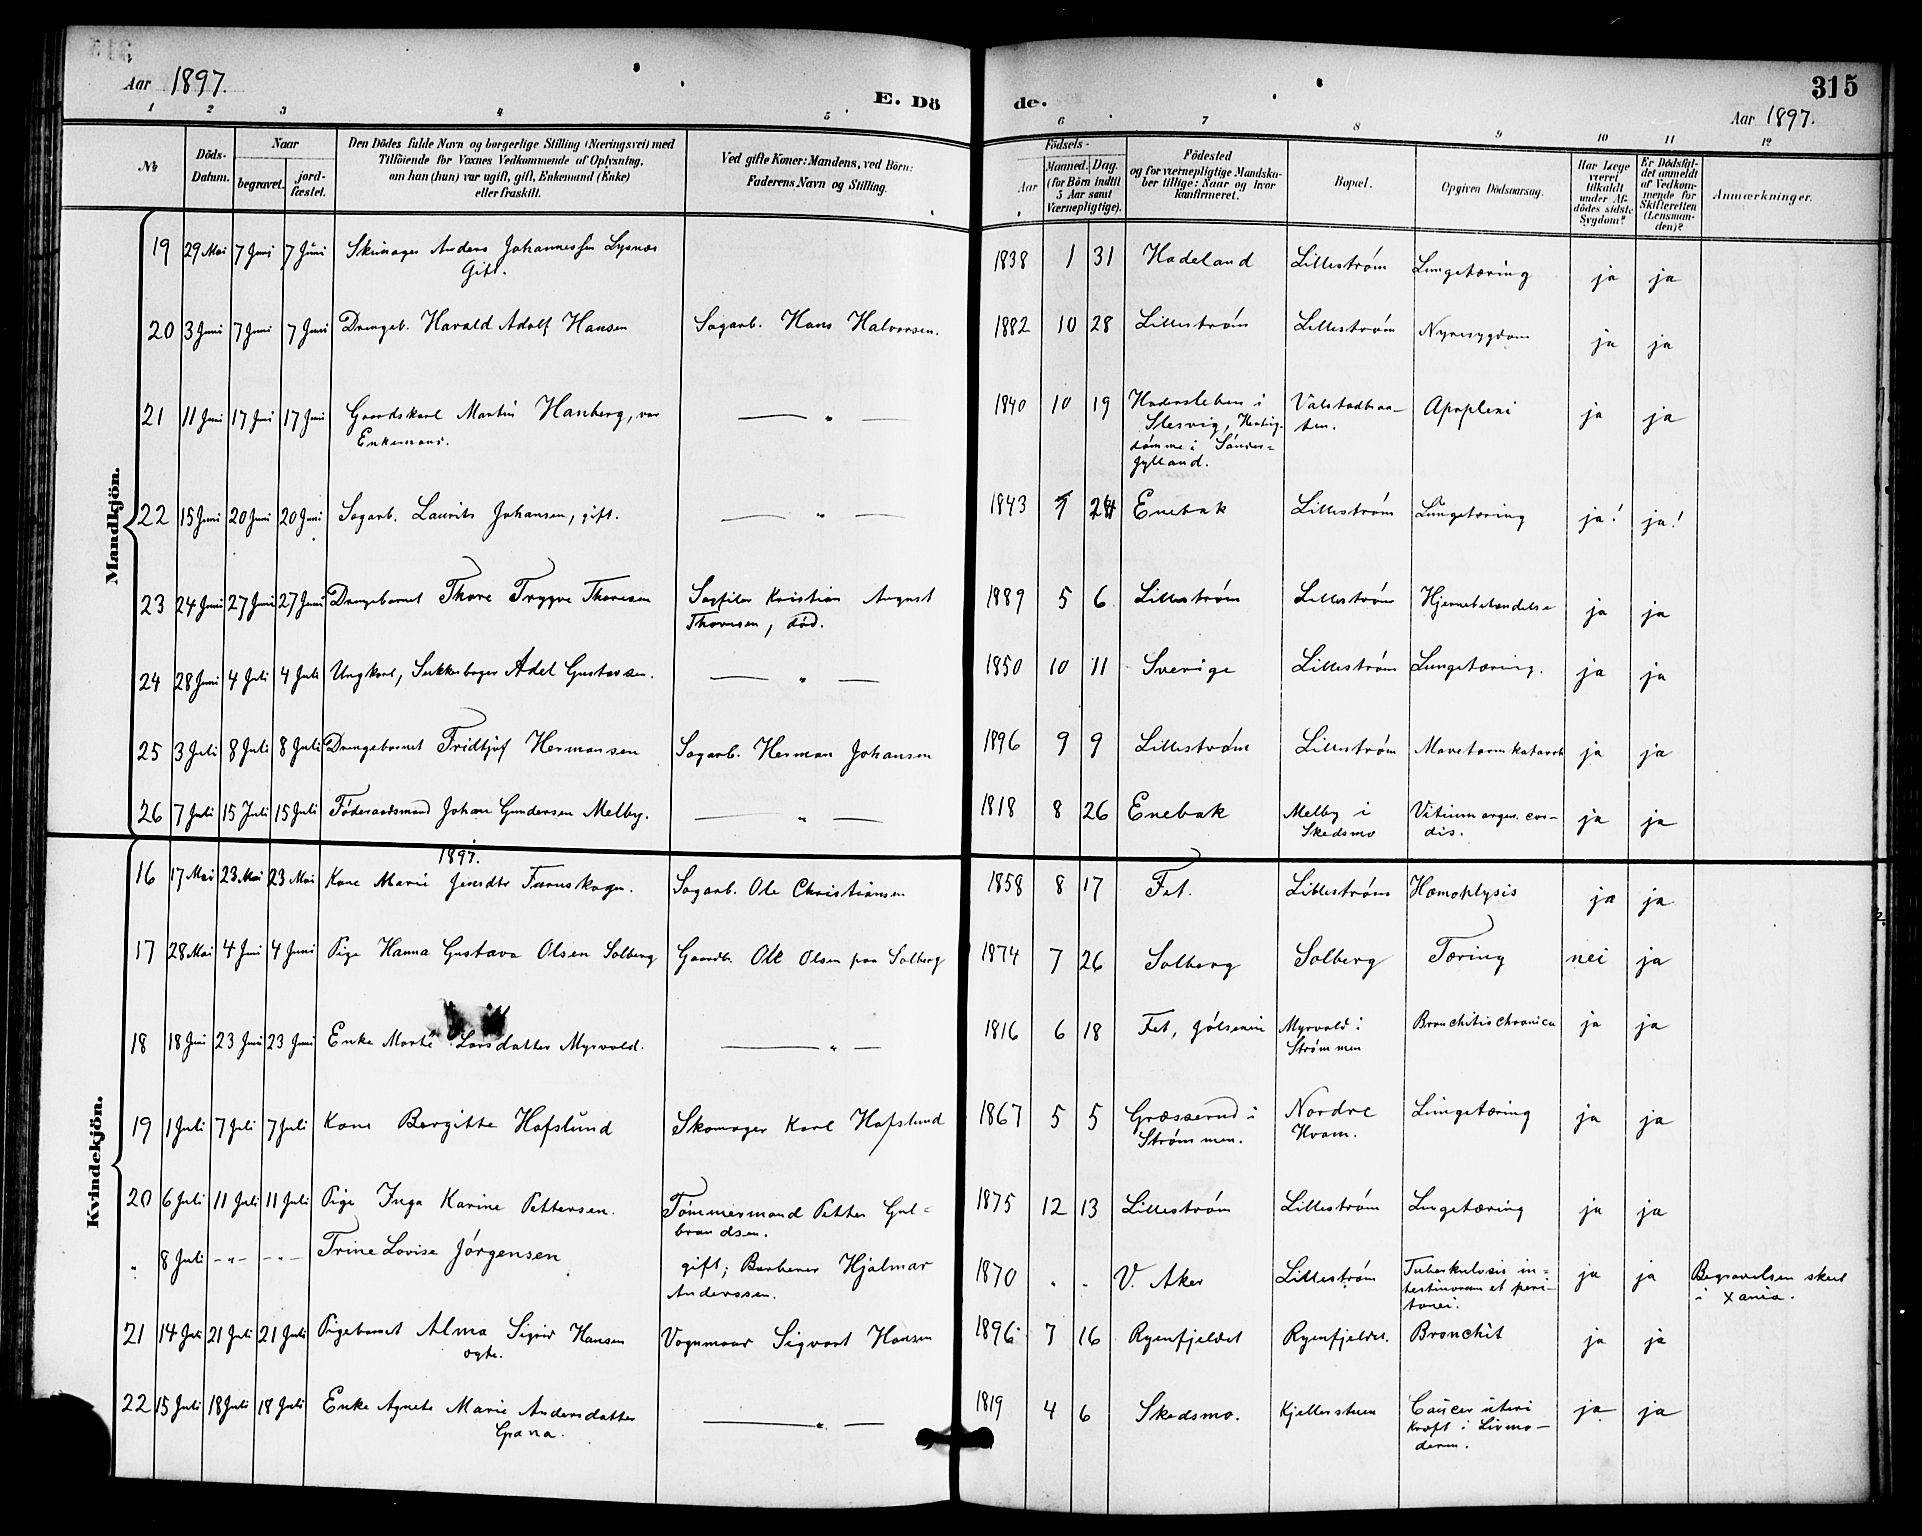 Aar 1897.
E. Dö
de.
315
Aar 1897.
1 2 3 4 5 6 7 8 9 10 11 12
№
Döds-
Datum.
Naar
begravet.
jord-
fæstet.
Den Dödes fulde Navn og borgerlige Stilling (Næringsvei) med
Tilföiende for Voxnes Vedkommende af Oplysning,
om han (hun) var ugift, gift, Enkemand (Enke)
eller fraskilt.
Ved gifte Koner: Mandens, ved Börn:
Faderens Navn og Stilling.
Födsels-
Aar
Maaned.
Dag.
(for Börn indtil
5 Aar samt
Værnepligtige).
Födested
og for værnepligtige Mandska-
ber tillige: Naar og hvor
konfirmeret.
Bopæl.
Opgiven Dödsaarsag.
Har Læge
været
tilkaldt
under Af-
dödes sidste
Sygdom?
Er Dödsfal-
det anmeldt
af Vedkom-
mende for
Skifteretten
(Lensman-
den)?
Anmærkninger.
Mandkjön.
19 29 Mai 7 Juni 7 Juni Skomager Anders Johannessen Lysnæs 1838 1 31 Hadeland Lillestrøm Lungetæring ja ja
Gift.
20 3 Juni 7 Juni 7 Juni Drengeb. Harald Adolf Hansen Sagarb. Hans Halvorsen. 1882 10 28 Lillestrøm Lillestrøm Nyresygdom ja ja
21 11 Juni 17 Juni 17 Juni Gaardskarl Martin Hanberg, var — " — 1840 10 19 Hadersleben i Valstadbraa- Apoplexi ja ja
Enkemand. Slesvig, Hertug- ten.
dømme i Sønder=
jylland.
22 15 Juni 20 Juni 20 Juni Sagarb. Laurits Johansen, gift. — " — 1843 24 Enebak Lillestrøm Lungetæring ja! ja!
23 24 Juni 27 Juni 27 Juni Drengebarnet Thore Trygve Thoresen Sagfiler Kristian August 1889 5 6 Lillestrøm Lillestrøm Hjernebetændelse ja ja
Thoresen, død.
24 28 Juni 4 Juli 4 Juli Ungkarl, Adel Gustavsen. — " — 1850 10 11 Sverige Lillestrøm Lungetæring. ja ja
25 3 Juli 8 Juli 8 Juli Drengebarnet Fridtjof Hermansen Sagarb. Herman Johansen 1896 9 9 Lillestrøm Lillestrøm Mavetarmkatarrh ja ja
26 7 Juli 15 Juli 15 Juli Føderaadsmand Johan Gundersen Melby. — " — 1818 8 26 Enebak Melby i Vitium organ. cor- ja ja
Skedsmo dis.
Kvindekjön.
1897.
16 17 Mai 23 Mai 23 Mai Kone Marie Jensdtr Furuskogen. Sagarb. Ole Christiansen 1858 8 17 Fet. Lillestrøm Hæmoptysis ja ja
17 28 Mai 4 Juni 4 Juni Pige Hanna Gustava Olsen Solberg Gaardb. Ole Olsen paa Solberg 1874 7 26 Solberg Solberg Tæring nei ja
18 18 Juni 23 Juni 23 Juni Enke Marte Larsdatter Myrvold. — " — 1816 6 18 Fet, Jølsenin Myrvold i Bronchitis chronica ja ja
Strømmen
19 1 Juli 7 Juli 7 Juli Kone Bergitte Hofslund Skomager Karl Hofslund 1867 5 5 Græsserud i Nordre Lungetæring ja ja
Strømmen. Hvam.
20 6 Juli 11 Juli 11 Juli Pige Inga Karine Pettersen. Tømmermand Petter Gul= 1875 12 13 Lillestrøm Lillestrøm Lungetæring ja ja
brandsen.
" 8 Juli -"- -"- Trine Lovise Jørgensen gift; Barberer Hjalmar 1870 . . V. Aker Lillestrøm Tuberkulosis in= ja ja Begravelsen skeet
Anderssen. testinorum et peri= i Xania.
tonei.
21 14 Juli 21 Juli 21 Juli Pigebarnet Alma Sigrid Hansen Vognmand Sigvart Hansen 1896 7 16 Ryenfjeldet Ryenfjeldet. Bronchit ja ja
ægte.
22 15 Juli 18 Juli 18 Juli Enke Agnete Marie Andersdatter — " — 1819 4 6 Skedsmo. Kjellerstuen Cancer uteri ja ja
Grana. Kræft i Livmo-
deren.